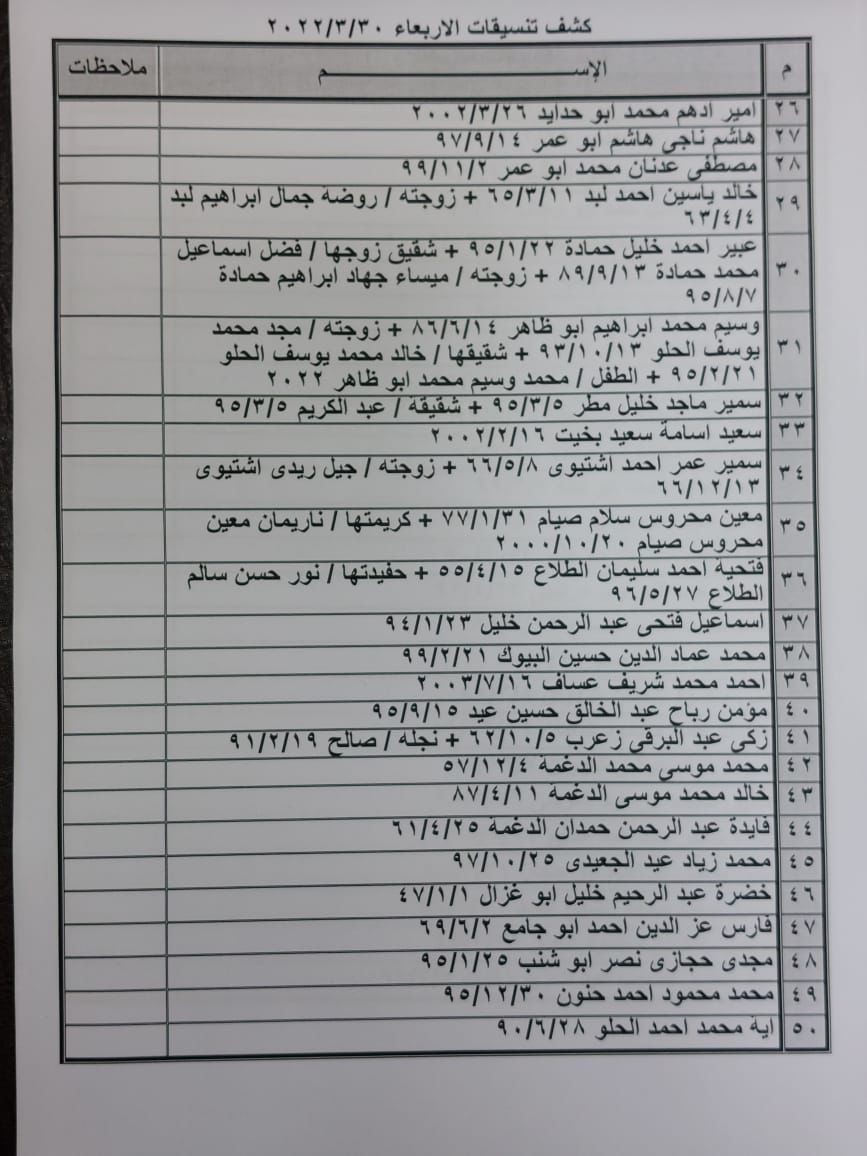 كشف تنسيقات الاربعاء ٢٠٢٢/٣/٣٠
م الإســـــــم ملاحظات
٢٦ امير ادهم محمد ابو حدايد ٢٠٠٢/٣/٢٦
٢٧ هاشم ناجى هاشم ابو عمر ٩٧/٩/١٤
٢٨ مصطفى عدنان محمد ابو عمر ٩٩/١١/٢
٢٩ خالد ياسين احمد لبد ٦٥/٣/١١ + زوجته / روضة جمال ابراهيم لبد
٦٣/٤/٤
٣٠ عبير احمد خليل حمادة ٩٥/١/٢٢ + شقيق زوجها / فضل اسماعيل
محمد حمادة ٨٩/٩/١٣ + زوجته / ميساء جهاد ابراهيم حمادة
٩٥/٨/٧
٣١ وسيم محمد ابراهيم ابو ظاهر ٨٦/٦/١٤ + زوجته / مجد محمد
يوسف الحلو ٩٣/١٠/١٣ + شقيقها / خالد محمد يوسف الحلو
٩٥/٢/٢١ + الطفل / محمد وسيم محمد ابو ظاهر ٢٠٢٢
٣٢ سمير ماجد خليل مطر ٩٥/٣/٥ + شقيقة / عبد الكريم ٩٥/٣/٥
٣٣ سعيد اسامة سعيد بخيت ٢٠٠٢/٢/١٦
٣٤ سمير عمر احمد اشتيوى ٦٦/٥/٨ + زوجته / جيل ريدى اشتيوى
٦٦/١٢/١٣
٣٥ معين محروس سلام صيام ٧٧/١/٣١ + كريمتها / ناريمان معين
محروس صيام ٢٠٠٠/١٠/٢٠
٣٦ فتحية احمد سليمان الطلاع ٥٥/٤/١٥ + حفيدتها / نور حسن سالم
الطلاع ٩٦/٥/٢٧
٣٧ اسماعيل فتحى عبد الرحمن خليل ٩٤/١/٢٣
٣٨ محمد عماد الدين حسين البيوك ٩٩/٢/٢١
٣٩ احمد محمد شريف عساف ٢٠٠٣/٧/١٦
٤٠ مؤمن رباح عبد الخالق حسين عيد ٩٥/٩/١٥
٤١ زكى عبد البرقى زعرب ٦٢/١٠/٥ + نجله / صالح ٩١/٢/١٩
٤٢ محمد موسى محمد الدغمة ٥٧/١٢/٤
٤٣ خالد محمد موسى الدغمة ٨٧/٤/١١
٤٤ فايدة عبد الرحمن حمدان الدغمة ٦١/٤/٢٥
٤٥ محمد زياد عيد الجعيدى ٩٧/١٠/٢٥
٤٦ خضرة عبد الرحيم خليل ابو غزال ٤٧/١/١
٤٧ فارس عز الدين احمد ابو جامع ٦٩/٦/٢
٤٨ مجدى حجازى نصر ابو شنب ٩٥/١/٢٥
٤٩ محمد محمود احمد حنون ٩٥/١٢/٣٠
٥٠ اية محمد احمد الحلو ٩٠/٦/٢٨